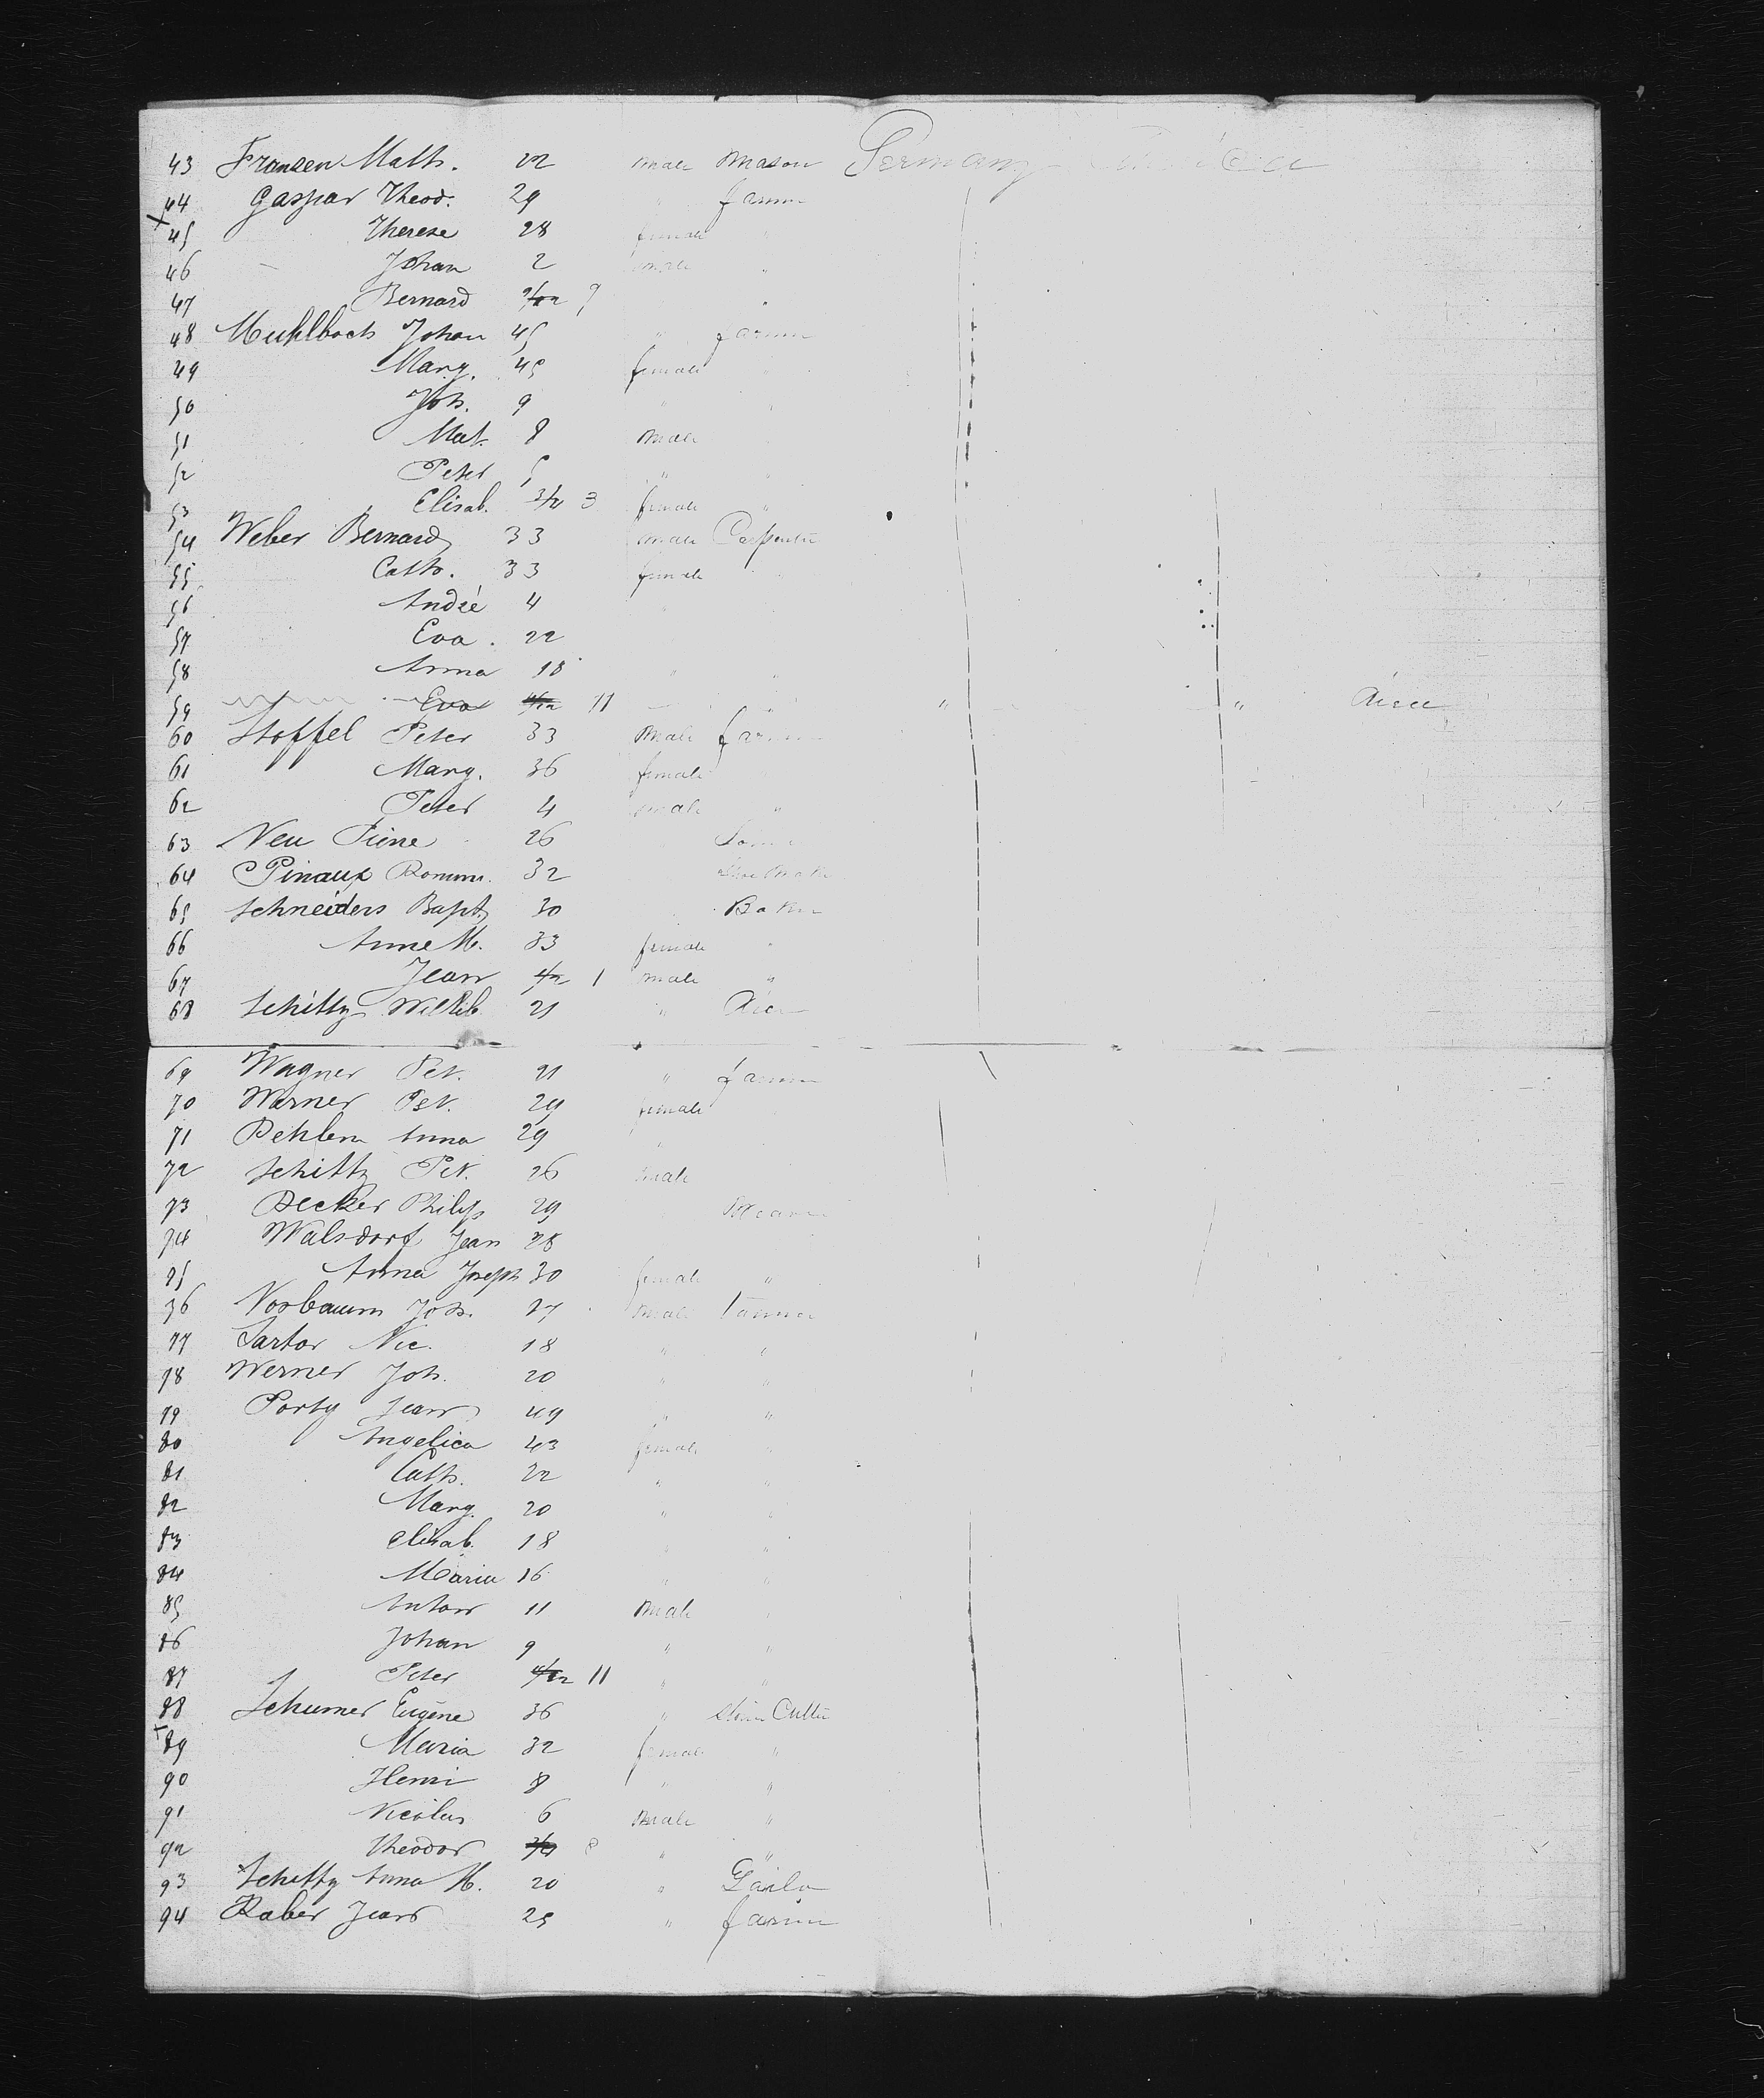 43 Fransen Math. 22 male Mason Germany
44 Gaspar Theod. 29 " farmer
x 45 Therese 28 female "
46 Johan 2 male "
47 Bernard 9/12 9 "
48 Muhlbach Johan 45 " farmer
49 Marg. 45 female "
50 Joh. 9 "
51 Mat. 8 male
52 Peter 5 " "
53 Elisab. 3/12 3 female "
54 Weber Bernard 33 male Carpenter
55 Cath. 33 female
56 André 4 "
57 Eva. 22
58 Anna 18 " "
59 Eva 11/12 11 " " " died
60 Stoffel Peter 33 Male farmer
61 Marg. 36 female "
62 Peter 4 male "
63 Neu Pierre 26
64 Pinaux Romm. 32 Shoemaker
65 Schneiders Bapt. 30 Baker
66 Anne M. 33 female "
67 Jean 1 male "
68 Schiltz 21 "
69 Wagner Pet. 21 " farmer
70 Warner Pet. 29 female
71 Dehlem Anna 29 "
72 Schiltz Pet. 26 male
73 Decker Philip 29
74 Walsdorf Jean 28
75 Anna Joseph 30 female "
76 Nosbaum Joh. 27 male Tanner
77 Sartor Nic. 18 " "
78 Werner Joh. 20 " "
79 Porty Jean 49 " "
80 Angelica 43 female "
81 Cath. 22 " "
82 Marg. 20 " "
83 Elisab. 18 " "
84 Maria 16 " "
85 Anton 11 Male "
86 Johan 9 " "
87 Peter 11/12 11 " "
88 Schumer Eugène 36 " Stone Cutter
x 89 Maria 32 female "
90 Henri 8 " "
91 Nicolas 6 male "
92 Theodor 8 " "
93 Anna M. 20 "
94 Raber Jean 25 " farmer